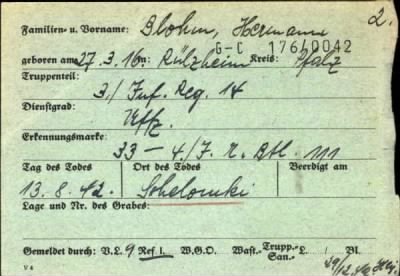 2.
Familien- u. Vorname: Blohm, Hermann
G-C 176/0042
geboren am 27.3.16 in: Rülzheim Kreis: Pfalz
Truppenteil: 3./Inf. Reg. 14
Dienstgrad: Uffz.
Erkennungsmarke: 33 – 4./J. R. Btl. 111
Tag des Todes Ort des Todes Beerdigt am
13.8.42. Schelomki
Lage und Nr. des Grabes:
Gemeldet durch: V.L. 9 Ref. I. W.G.O. Wast.- Trupp.- San.- L. Bl.
V 4